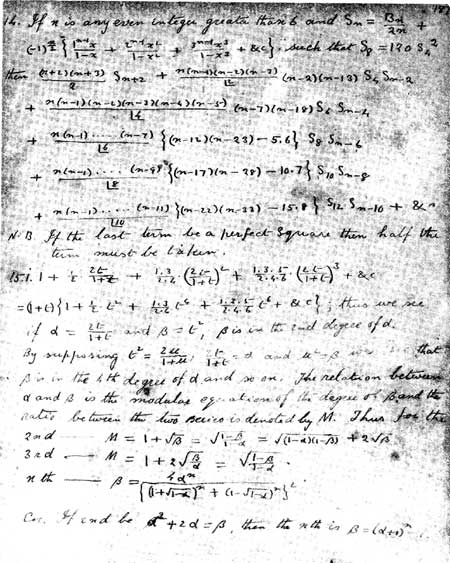 14. If n is any even integer greater than 6 and Sn = Bn/2n +
(-1)^(n/2) { 1^(n-1)x/(1-x) + 2^(n-1)x²/(1-x²) + 3^(n-1)x³/(1-x³) + &c } ; such that S8 = 120 S4²
then (n+2)(n+3)/2 Sn+2 + n(n-1)(n-2)(n-3)/|2 (n-2)(n-13) S4 Sn-2
+ n(n-1)(n-2)(n-3)(n-4)(n-5)/|4 (n-7)(n-18) S6 Sn-4
+ n(n-1).....(n-7)/|6 {(n-12)(n-23) - 5.6} S8 Sn-6
+ n(n-1).....(n-9)/|8 {(n-17)(n-28) - 10.7} S10 Sn-8
+ n(n-1).....(n-11)/|10 {(n-22)(n-33) - 15.8} S12 Sn-10 + &c
N.B. If the last term be a perfect Square then half the
term must be taken.
15. i. 1 + ½ 2t/(1+t) + 1.3/2.4 (2t/(1+t))² + 1.3.5/2.4.6 (2t/(1+t))³ + &c
= (1+t) {1 + ½ t² + t⁴ + t⁶ + &c} ; thus we see
if α = 2t/(1+t) and β = t², β is in the 2nd degree of α.
By supposing t² = 2u/(1+u), 2t/(1+t) = α and u² = β we that
β is in the 4th degree of α and so on. The relation between
α and β is the modular equation of the degree of β and the
ratio between the two series is denoted by M. Thus for the
2nd — M = 1 + √β = √((1-β)/(1-α)) = √((1-α)(1-β)) + 2√β
3rd — M = 1 + 2√(β/α) = √((1-β)/α)
nth — β = 4αⁿ/{(1+√(1-α))ⁿ + (1-√(1-α))ⁿ}²
Cor. If 2nd be α² + 2α = β, then the nth is β = (α+1)ⁿ - 1.